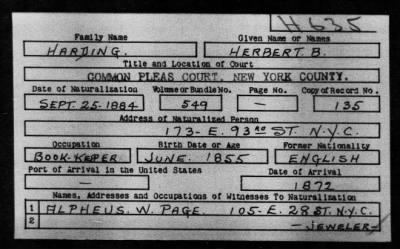 H 635
Family Name Given Name or Names
HARDING. HERBERT B.
Title and Location of Court
COMMON PLEAS COURT, NEW YORK COUNTY.
Date of Naturalization Volume or Bundle No. Page No. Copy of Record No.
SEPT. 25-1884 549 — 135
Address of Naturalized Person
173-E. 93RD ST. N.Y.C.
Occupation Birth Date or Age Former Nationality
BOOK-KEPER JUNE. 1855 ENGLISH
Port of Arrival in the United States Date of Arrival
— 1872
Names, Addresses and Occupations of Witnesses To Naturalization
1 ALPHEUS. W. PAGE. 105-E. 28 ST. N.Y.C.
2 -JEWELER-